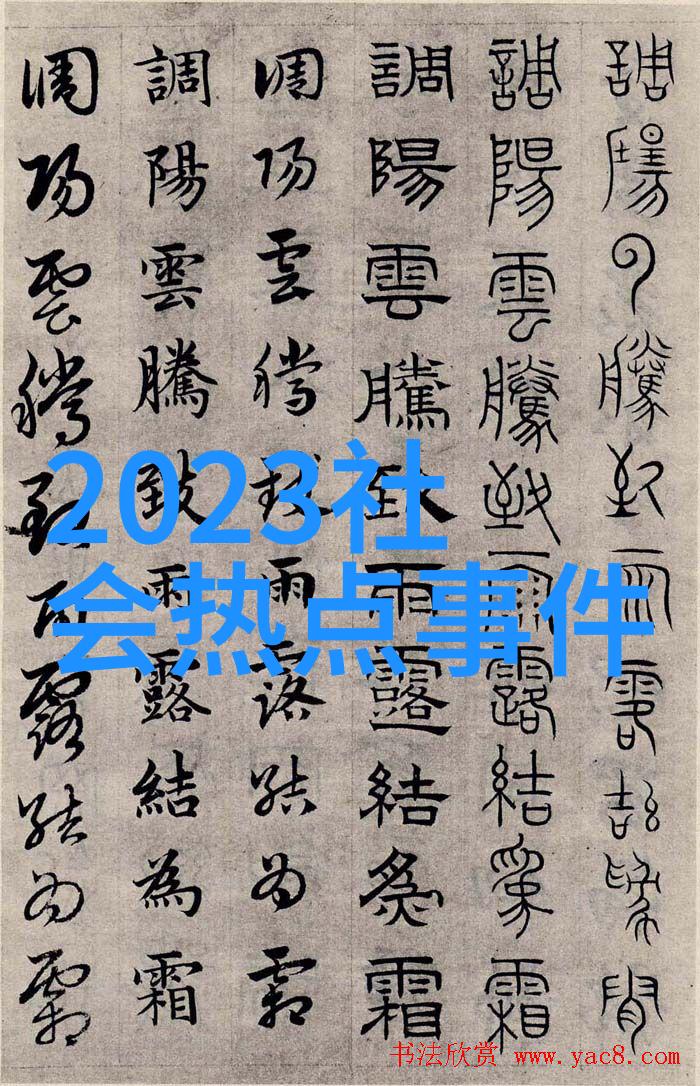 調陽雲騰致雨露結為霜
調陽雲騰致雨露結為霜
調陽雲騰致雨露結為霜
調陽雲騰致雨露結為霜
調陽雲騰致雨露結為霜
調陽雲騰致雨露結為霜
2023社
会热点事件
书法欣赏 www.yac8.com